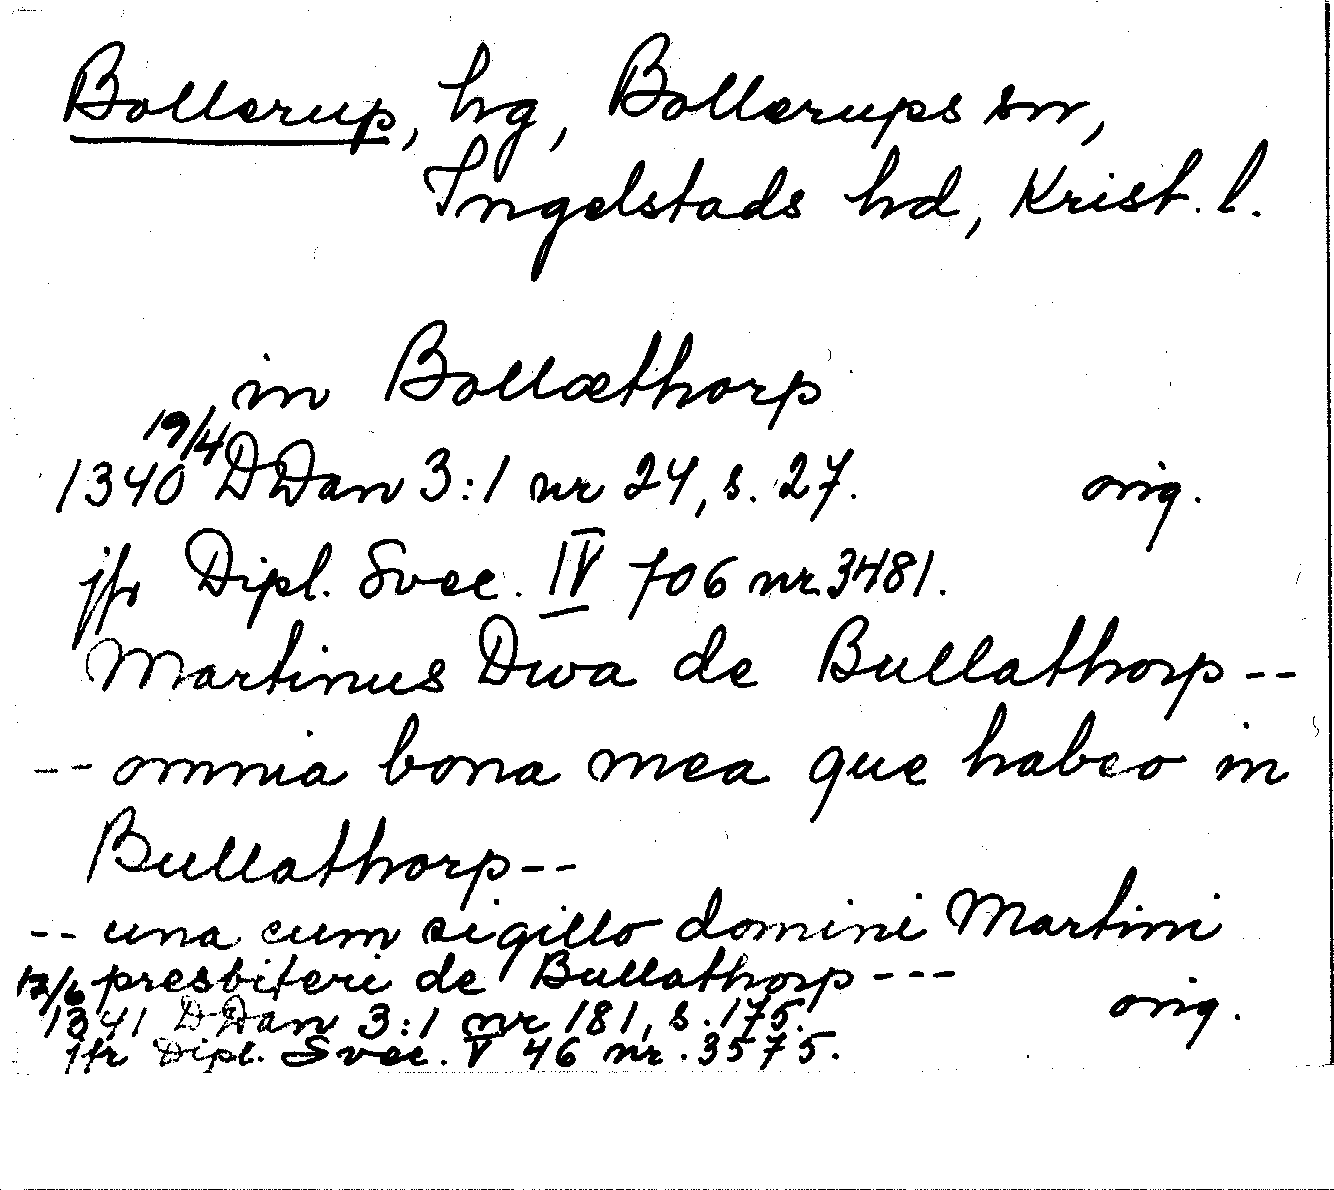 Bollerup, hg, Bollerups sn,
Ingelstads hd, Krist. l.
in Bollæthorp
19/4
1340 DDan 3:1 nr 24, s. 27. orig.
jfr Dipl. Svec. IV 706 nr 3481.
Martinus Dwa de Bullathorp --
-- omnia bona mea que habeo in
Bullathorp --
-- una cum sigillo domini Martini
presbiteri de Bullathorp ---
1341 DDan 3:1 nr 181, s. 175. orig.
jfr Dipl. Svec. V 46 nr. 3575.